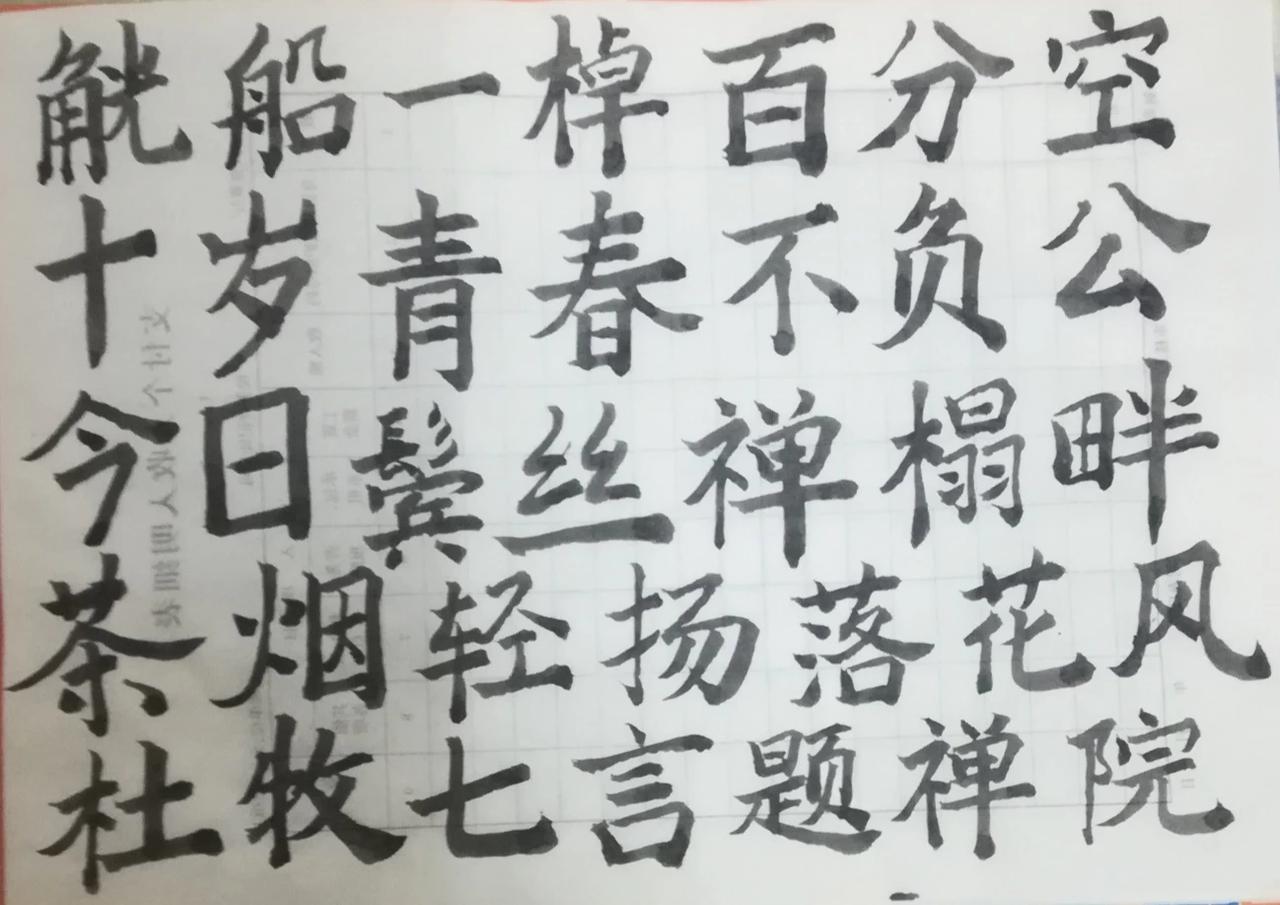 觥船一棹百分空
十岁青春不负公
今日鬓丝禅榻畔
茶烟轻扬落花风
杜牧七言题禅院